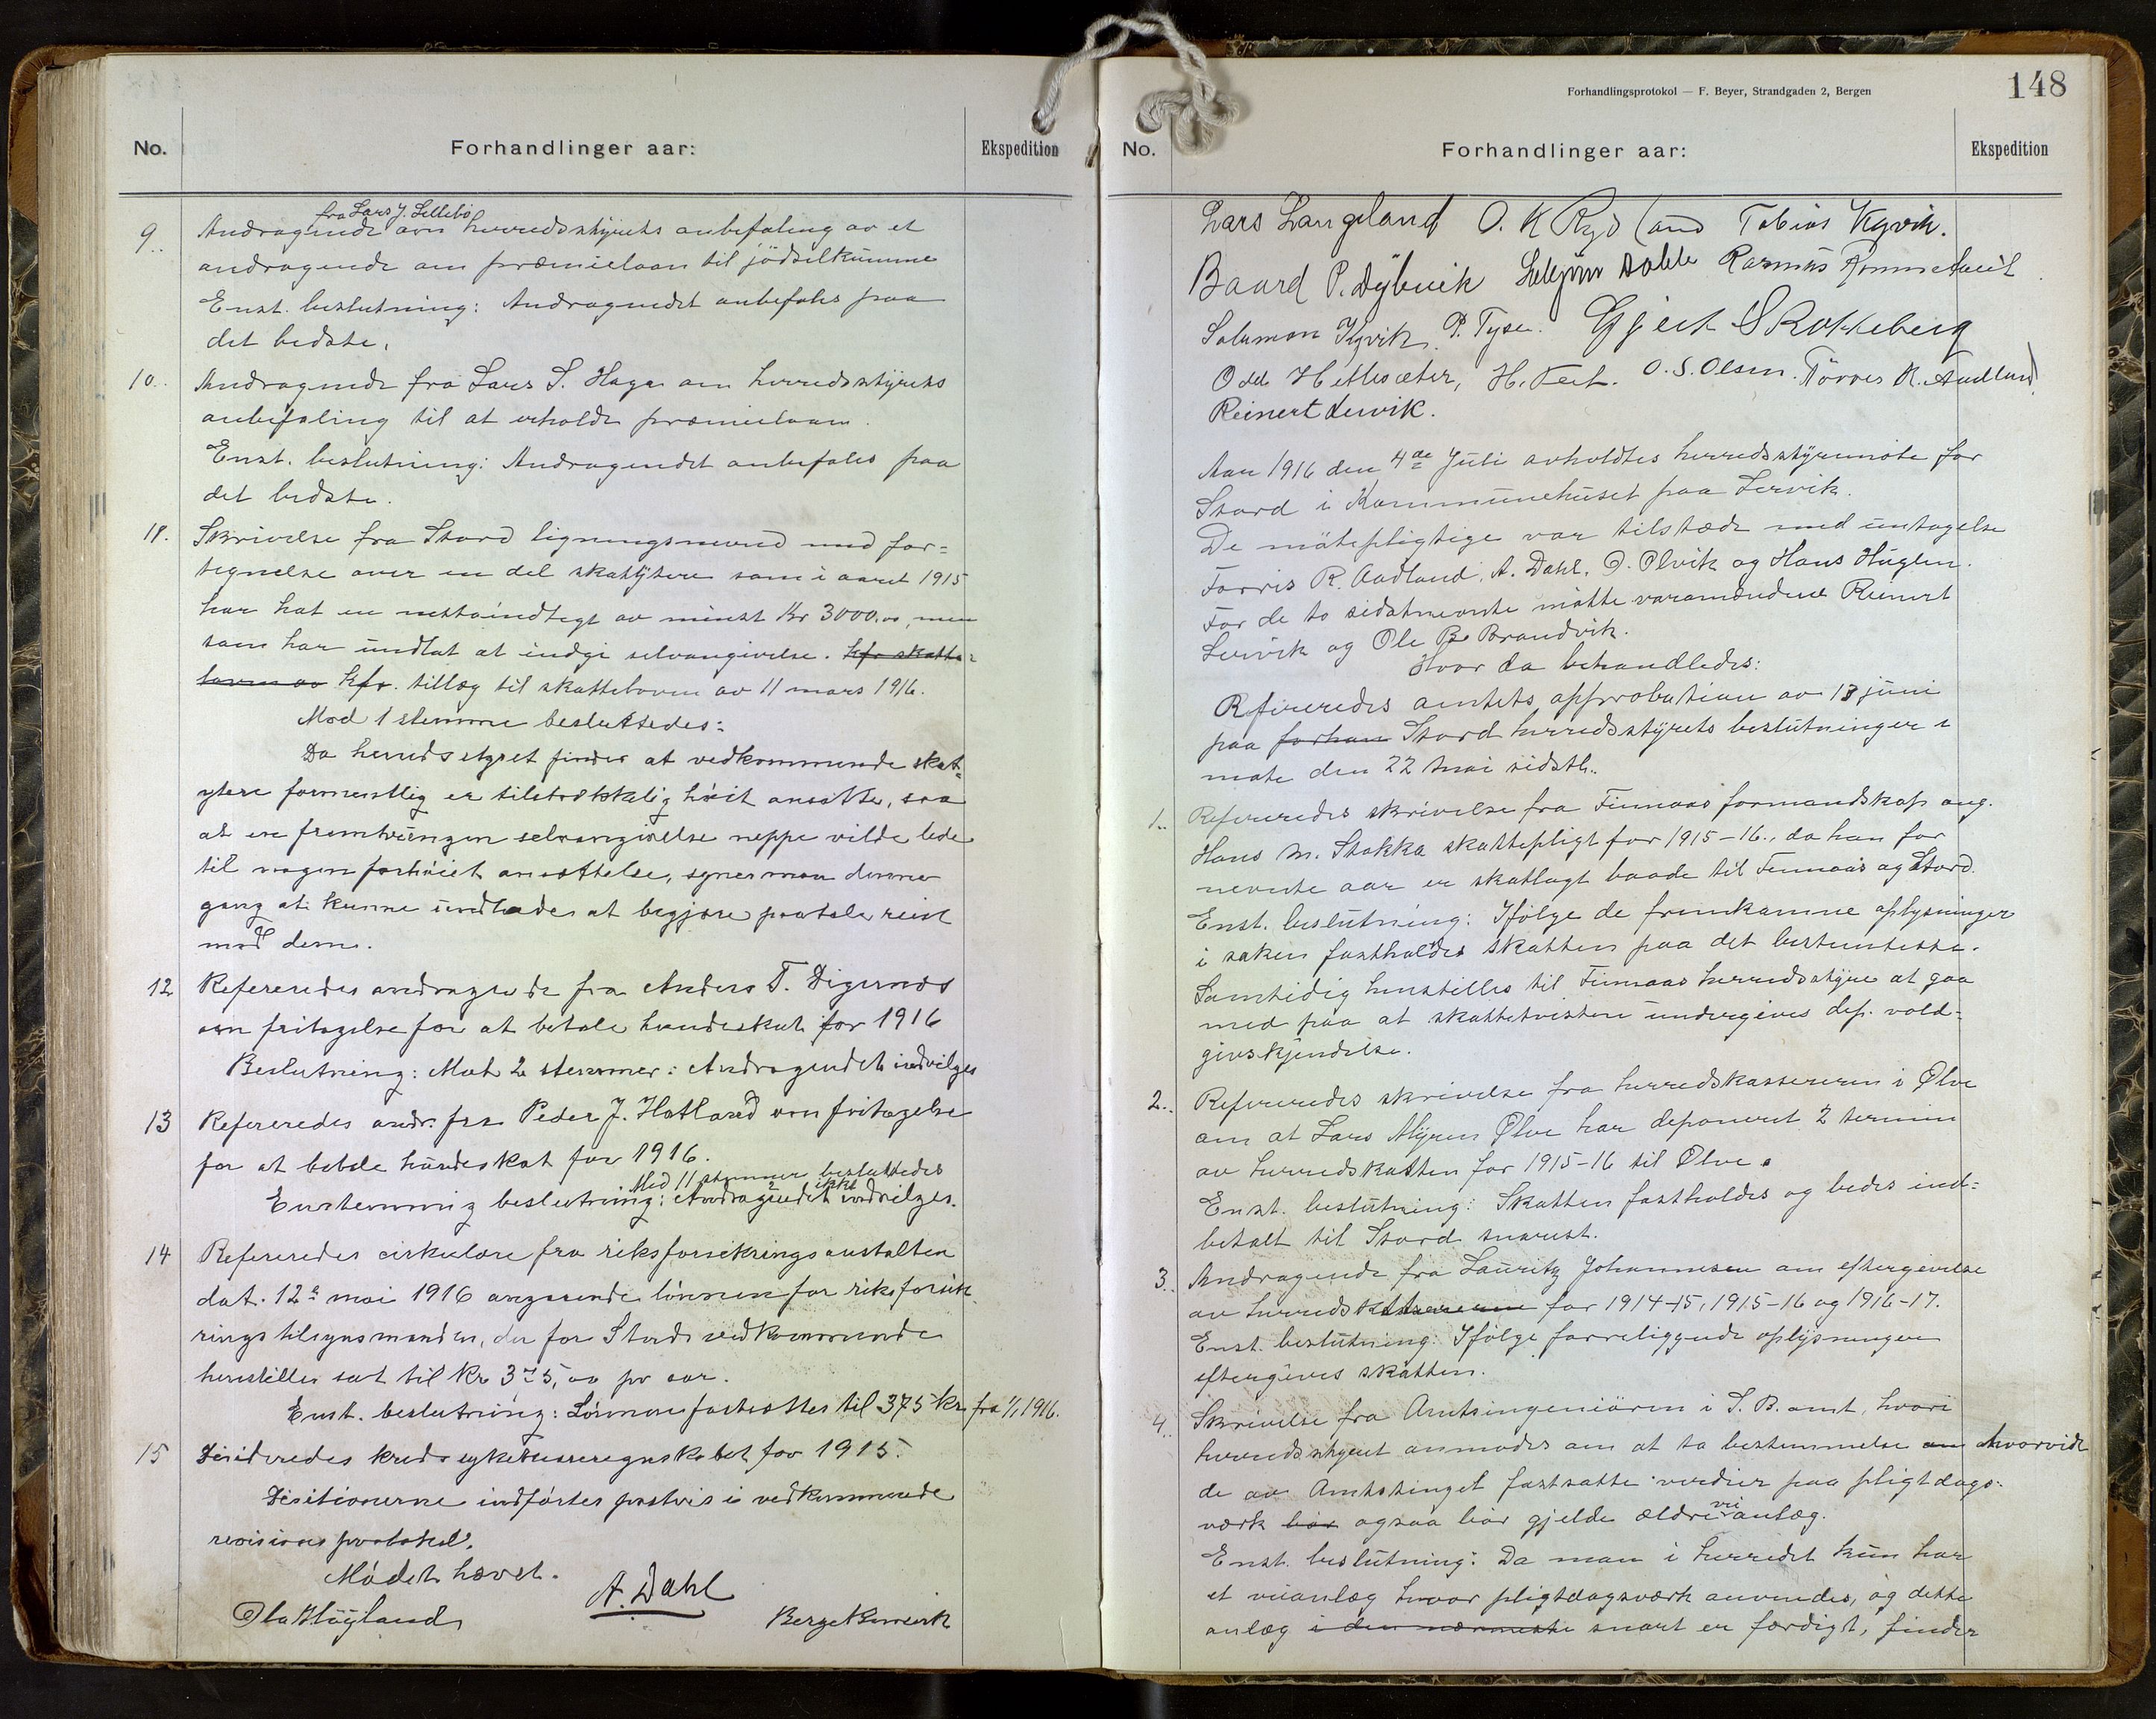 No. Forhandlinger aar: Ekspedition
9. Andragende fra Lars J. Lillebö om herredsstyrets anbefaling av et
andragende om præmielaan til jödselkumme
Enst. beslutning: Andragendet anbefales paa
det bedste.
10. Andragende fra Lars S. Haga om herredsstyrets
anbefaling til at erholde præmielaan.
Enst. beslutning: Andragendet anbefales paa
det bedste.
11. Skrivelse fra Stord ligningsnevnd med for=
tegnelse over en del skatytere som i aaret 1915
har hat en nettoindtegt av minst Kr 3000.00, men
som har undlat at indgi selvangivelse. kfr skatte=
loven av kfr. tillæg til skatteloven av 11 mars 1916.
Mod 1 stemme besluttedes:
Da herredsstyret finder at vedkommende skat=
ytere formentlig er tilstrækkelig höit ansatte, saa
at en fremtvungen selvangivelse neppe vilde lede
til nogen forhöiet ansættelse, synes man denne
gang at kunne undlade at begjære paatale reist
mod dem.
12 Refereredes andragende fra Anders T. Digernes
om fritagelse for at betale hundeskat for 1916
Beslutning: Mot 2 stemmer: Andragendet indvilges
13 Refereredes andr. fra Peder J. Hatland om fritagelse
for at betale hundeskat for 1916.
Med 11 stemmer besluttedes
Enstemmig beslutning: Andragendet ikke indvilges.
14 Refereredes cirkulære fra riksforsikringsanstalten
dat. 12te mai 1916 angaaende lönnen for riksforsik
ringstilsynsmanden, der for Stords vedkommende
henstilles sat til kr 375,00 pr aar.
Enst. beslutning: Lönnen fastsættes til 375 kr fra 1/1 1916.
15 Desideredes kredssykekasseregnskabet for 1915.
Desitionerne indförtes postvis i vedkommende
revisions protokol.
Mödet hævet.
A. Dahl
Ola Höyland
148
Forhandlingsprotokol — F. Beyer, Strandgaden 2, Bergen
No. Forhandlinger aar: Ekspedition
Lars Langeland O. K Rydland Tobias Kyvik.
Baard P. Dybvik Dahle Rasmus Rommetveit
Salomon Kyvik P. Tyse. Gjert S Rokkeberg
Odd H ettesæter, H. Teit. O. S. Olsen. Törres R. Audland
Reinert Lervik.
Aar 1916 den 4de Juli avholdtes herredsstyremöte for
Stord i Kommunehuset paa Lervik.
De mötepligtige var tilstæde med untagelse
Torris R. Aadland, A. Dahl, O. Olvik og Hans Huglen.
For de to sidstnevnte mötte varamændene Reinert
Lervik og Ole B. Brandvik.
Hvor da behandledes:
Refereredes amtets approbation av 13 juni
paa forhan Stord herredsstyrets beslutninger i
möte den 22 mai sidstl.
1. Refereredes skrivelse fra Finnaas formandskap ang.
Hans M. Stokka skattepligt for 1915-16., da han for
nevnte aar er skatlagt baade til Finnaas og Stord.
Enst. beslutning: Ifölge de fremkomne oplysninger
i saken fastholdes skatten paa det bestemteste.
Samtidig henstilles til Finnaas herredsstyre at gaa
med paa at skattetvisten undergives dep. vold=
givskjendelse.
2. Refereredes skrivelse fra herredskassereren i Ølve
om at Lars Myren Ølve har deponeret 2 termin
av herredskatten for 1915-16 til Ølve.
Enst. beslutning: Skatten fastholdes og bedes ind=
betalt til Stord snarest.
3. Andragende fra Lauritz Johannesen om eftergivelse
av herredsk for 1914-15, 1915-16 og 1916-17.
Enst. beslutning: Ifölge foreliggende oplysninger
eftergives skatten.
4. Skrivelse fra Amtsingeniören i S. B. amt, hvori
herredsstyret anmodes om at ta bestemmelse om hvorvidt
de av Amtstinget fastsatte verdier paa pligtdags=
værk bör ogsaa bör gjelde ældre veianlæg.
Enst. beslutning: Da man i herredet kun har
et veianlæg hvor pligtdagsværk anvendes, og dette
anlæg i den nærmeste snart er færdigt, finder